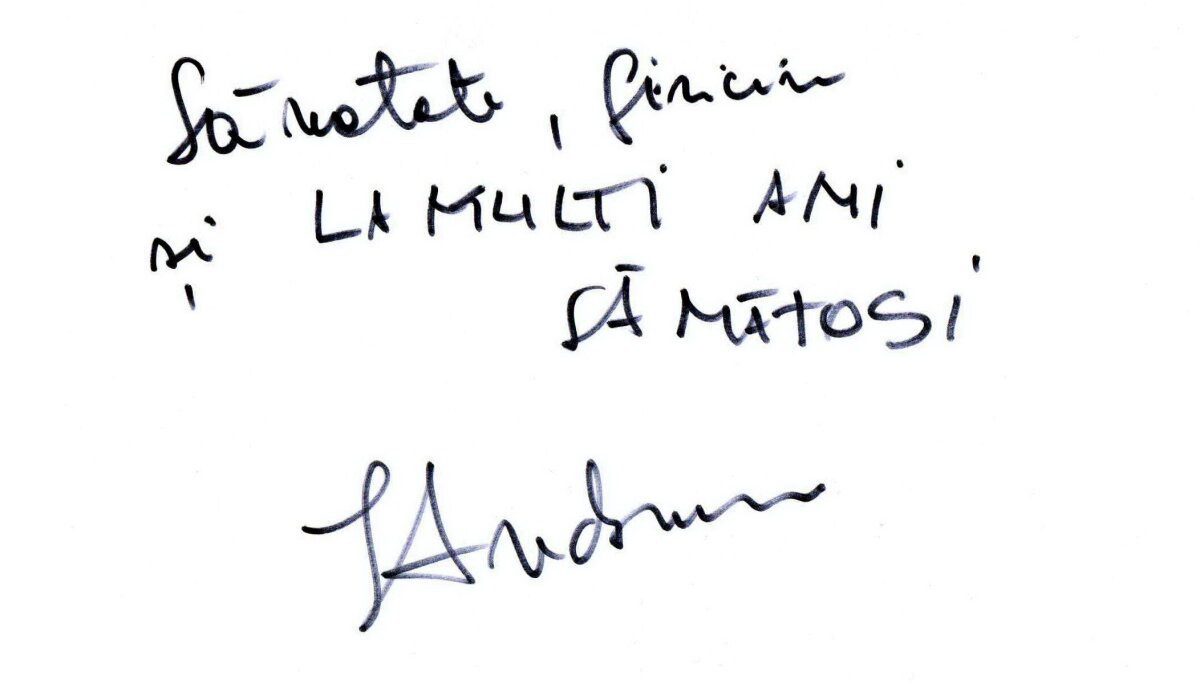 Sănatate, fericire
și LA MULTI ANI
SĂNĂTOSI